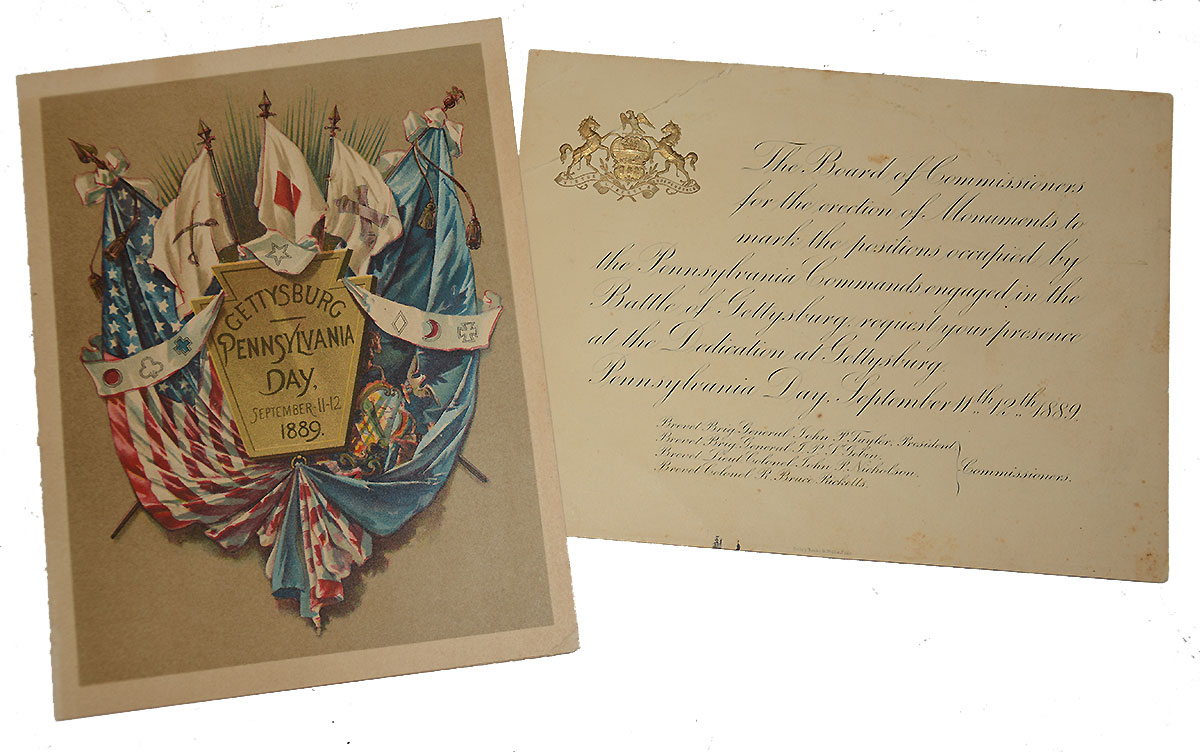 GETTYSBURG
PENNSYLVANIA
DAY,
SEPTEMBER-11-12
1889.
The Board of Commissioners
for the erection of Monuments to
mark the positions occupied by
the Pennsylvania Commands engaged in the
Battle of Gettysburg, request your presence
at the Dedication at Gettysburg,
Pennsylvania Day, September 11th 12th 1889.
Brevet Brig. General John P. Taylor, President
Brevet Brig. General J. P. S. Gobin,
Brevet Lieut. Colonel John P. Nicholson,
Brevet Colonel R. Bruce Ricketts.
Commissioners.